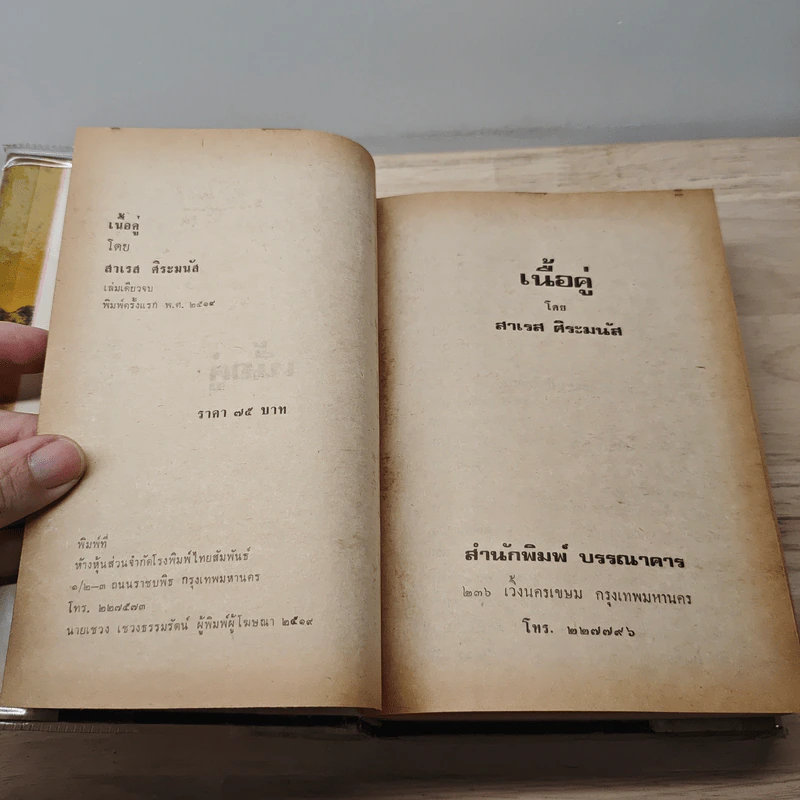 เนื้อคู่
โดย
สาเรส ศิระมนัส
เล่มเดียวจบ
พิมพ์ครั้งแรก พ.ศ. ๒๕๑๙
ราคา ๗๕ บาท
พิมพ์ที่
ห้างหุ้นส่วนจำกัดโรงพิมพ์ไทยสัมพันธ์
๑/๒—๓ ถนนราชบพิธ กรุงเทพมหานคร
โทร. ๒๒๗๕๗๓
นายเชวง เชวงธรรมรัตน์ ผู้พิมพ์ผู้โฆษณา ๒๕๑๙
เนื้อคู่
โดย
สาเรส ศิระมนัส
สำนักพิมพ์ บรรณาคาร
๒๓๖ เวิ้งนครเขษม กรุงเทพมหานคร
โทร. ๒๒๗๗๙๖